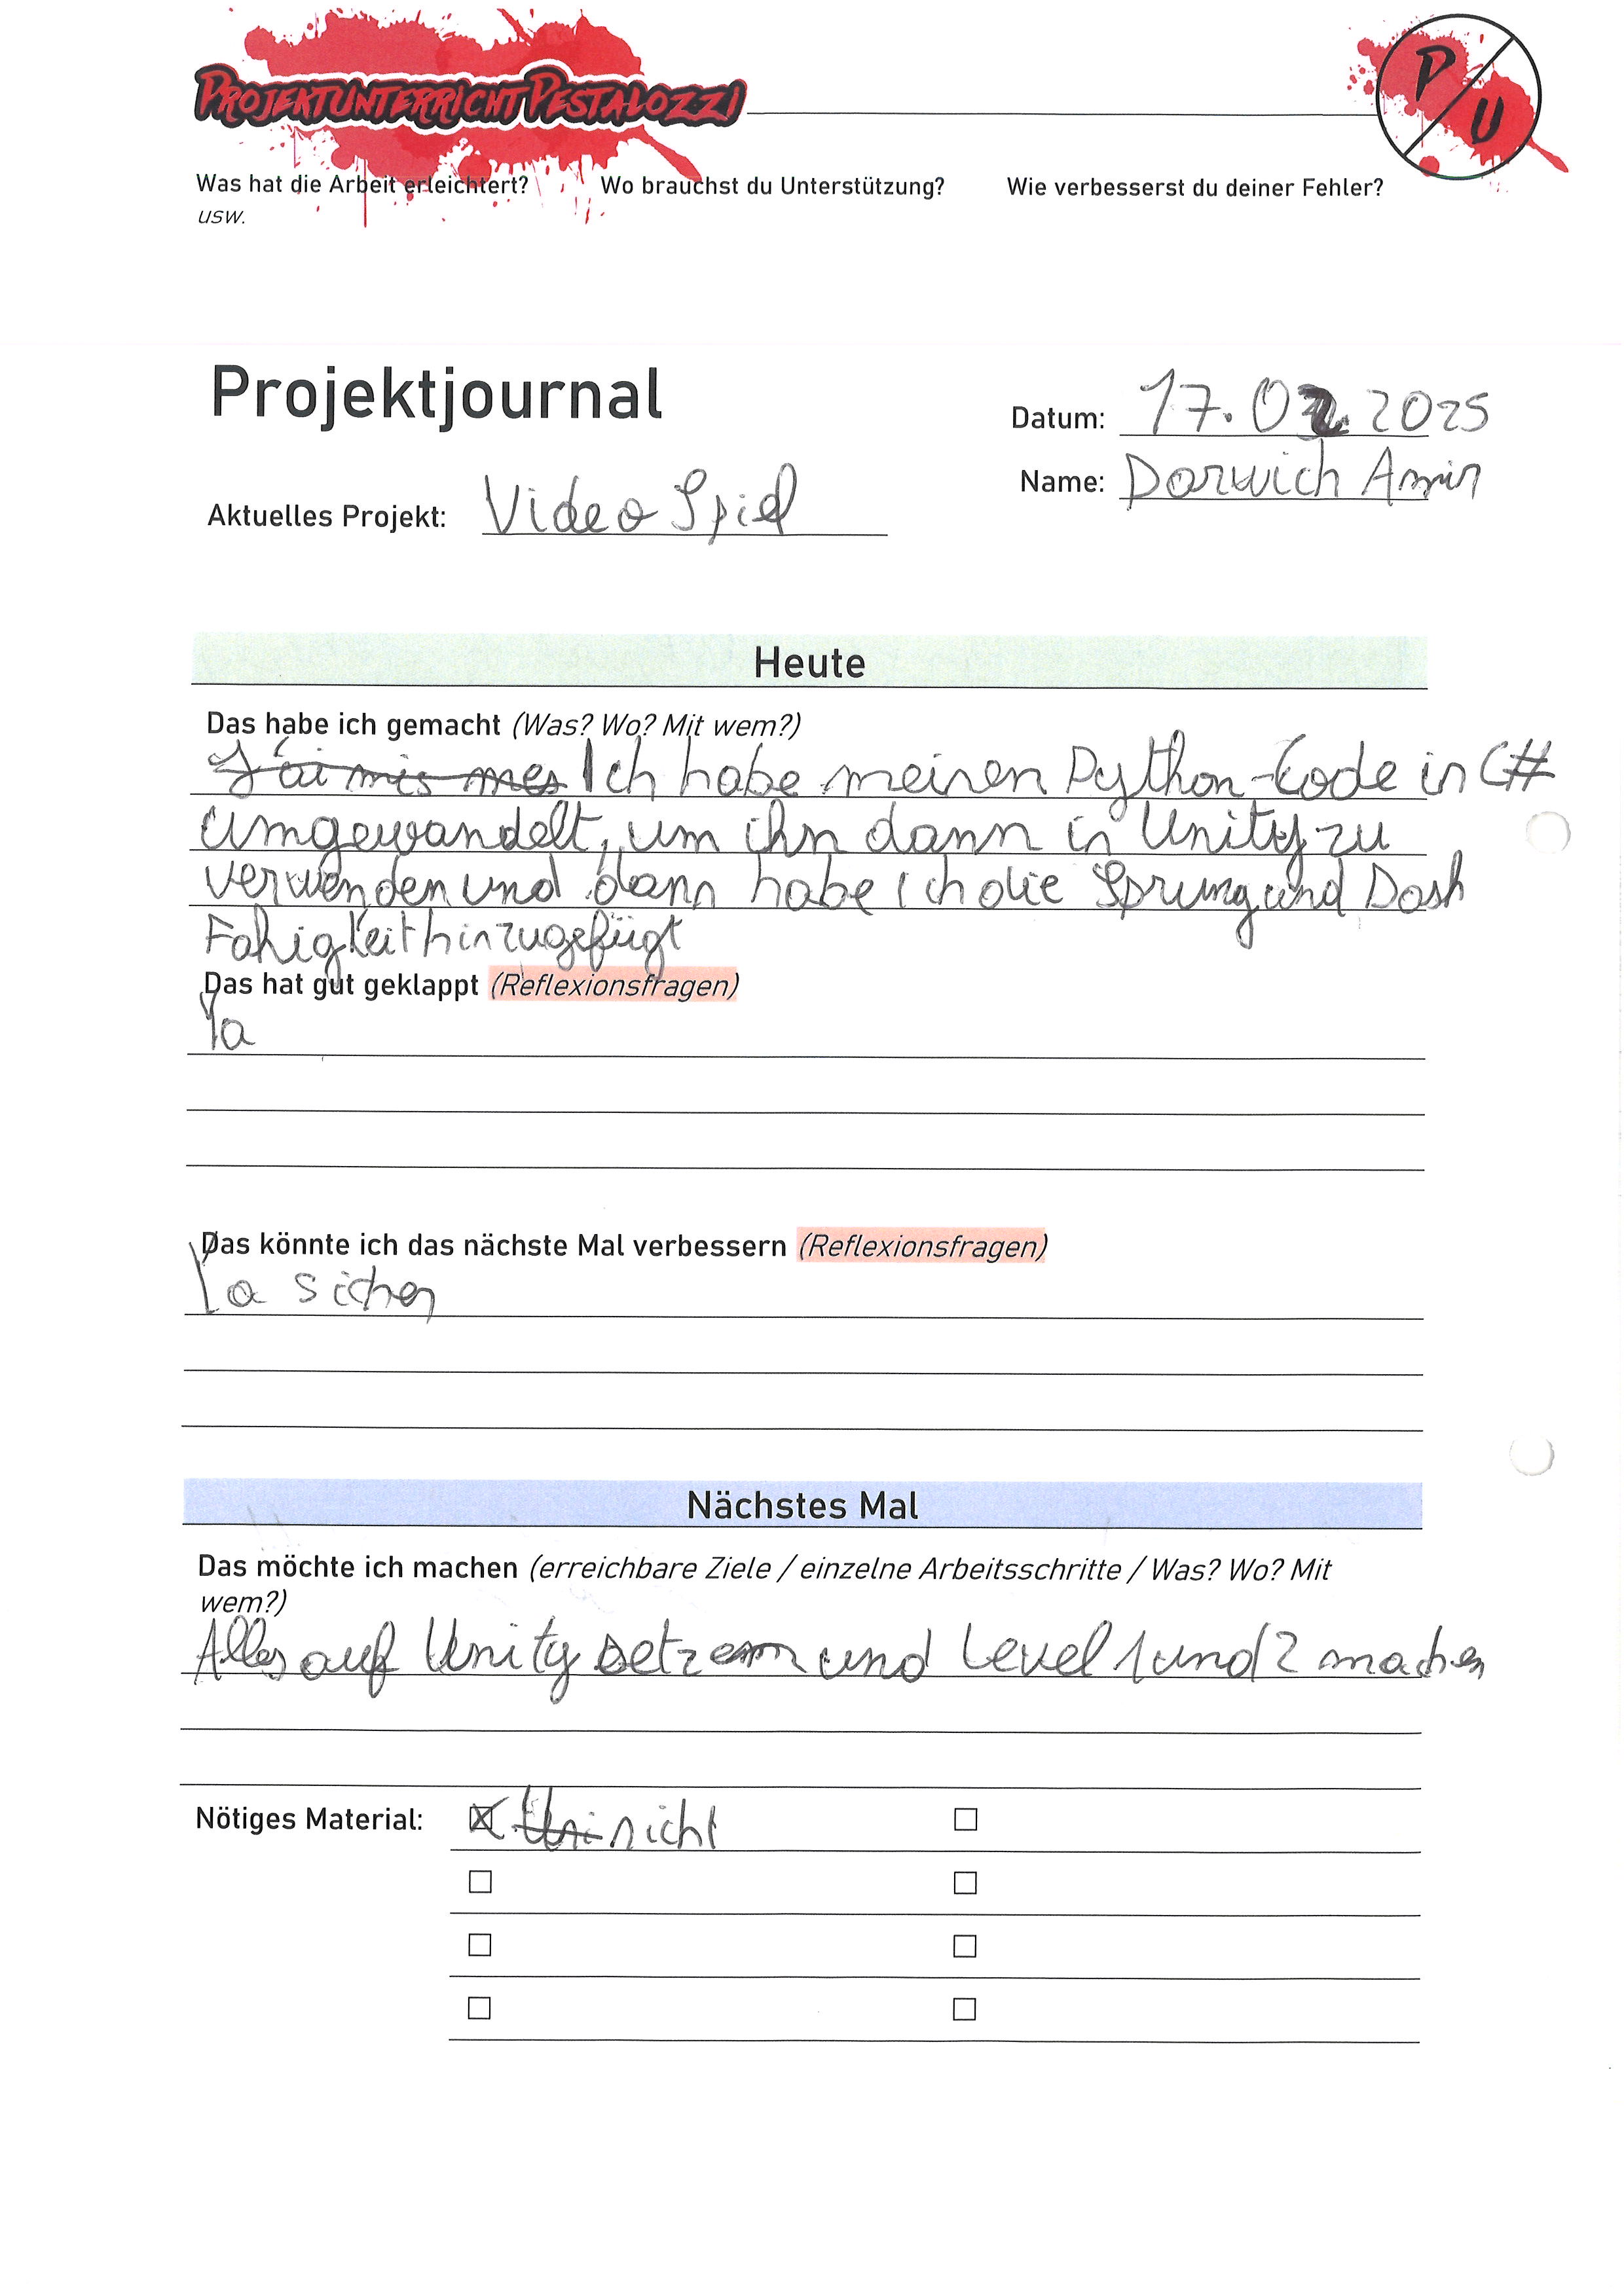 PROJEKTUNTERRICHT PESTALOZZI
P U
Was hat die Arbeit erleichtert? Wo brauchst du Unterstützung? Wie verbesserst du deiner Fehler?
usw.
Projektjournal
Datum: 17.02.2025
Name: Darwich Amir
Aktuelles Projekt: Video Spiel
Heute
Das habe ich gemacht (Was? Wo? Mit wem?)
J'ai mis mes Ich habe meinen Python-Code in C#
umgewandelt, um ihn dann in Unity zu
verwenden und dann habe ich die Sprung und Dash
Fahigkeit hinzugefügt
Das hat gut geklappt (Reflexionsfragen)
Ja
Das könnte ich das nächste Mal verbessern (Reflexionsfragen)
Ja sicher
Nächstes Mal
Das möchte ich machen (erreichbare Ziele / einzelne Arbeitsschritte / Was? Wo? Mit
wem?)
Alles auf Unity setzen und Level 1 und 2 machen
Nötiges Material: ☒ Uni nicht ☐
☐ ☐
☐ ☐
☐ ☐